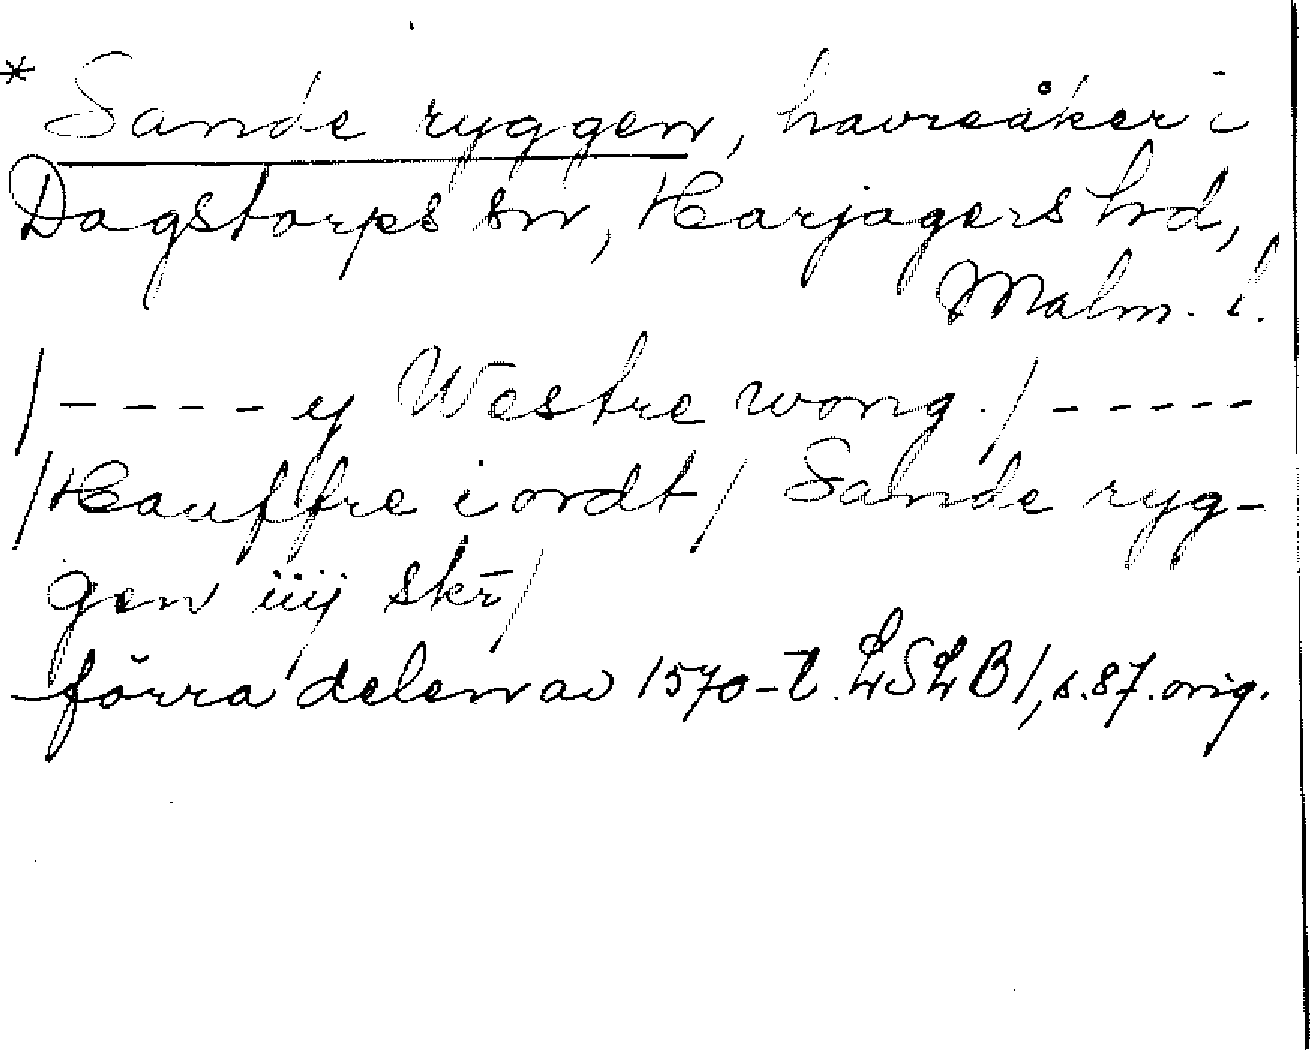 * Sande ryggen, havreåker i
Dagstorps sn, Harjagers hd,
Malm. l.
/ - - - - y Westre wong. / - - - - -
/ Hauffre i ordt / Sande ryg-
gen iiij skr̄ /
förra delen av 1570-t. LSLB 1, s. 87. orig.